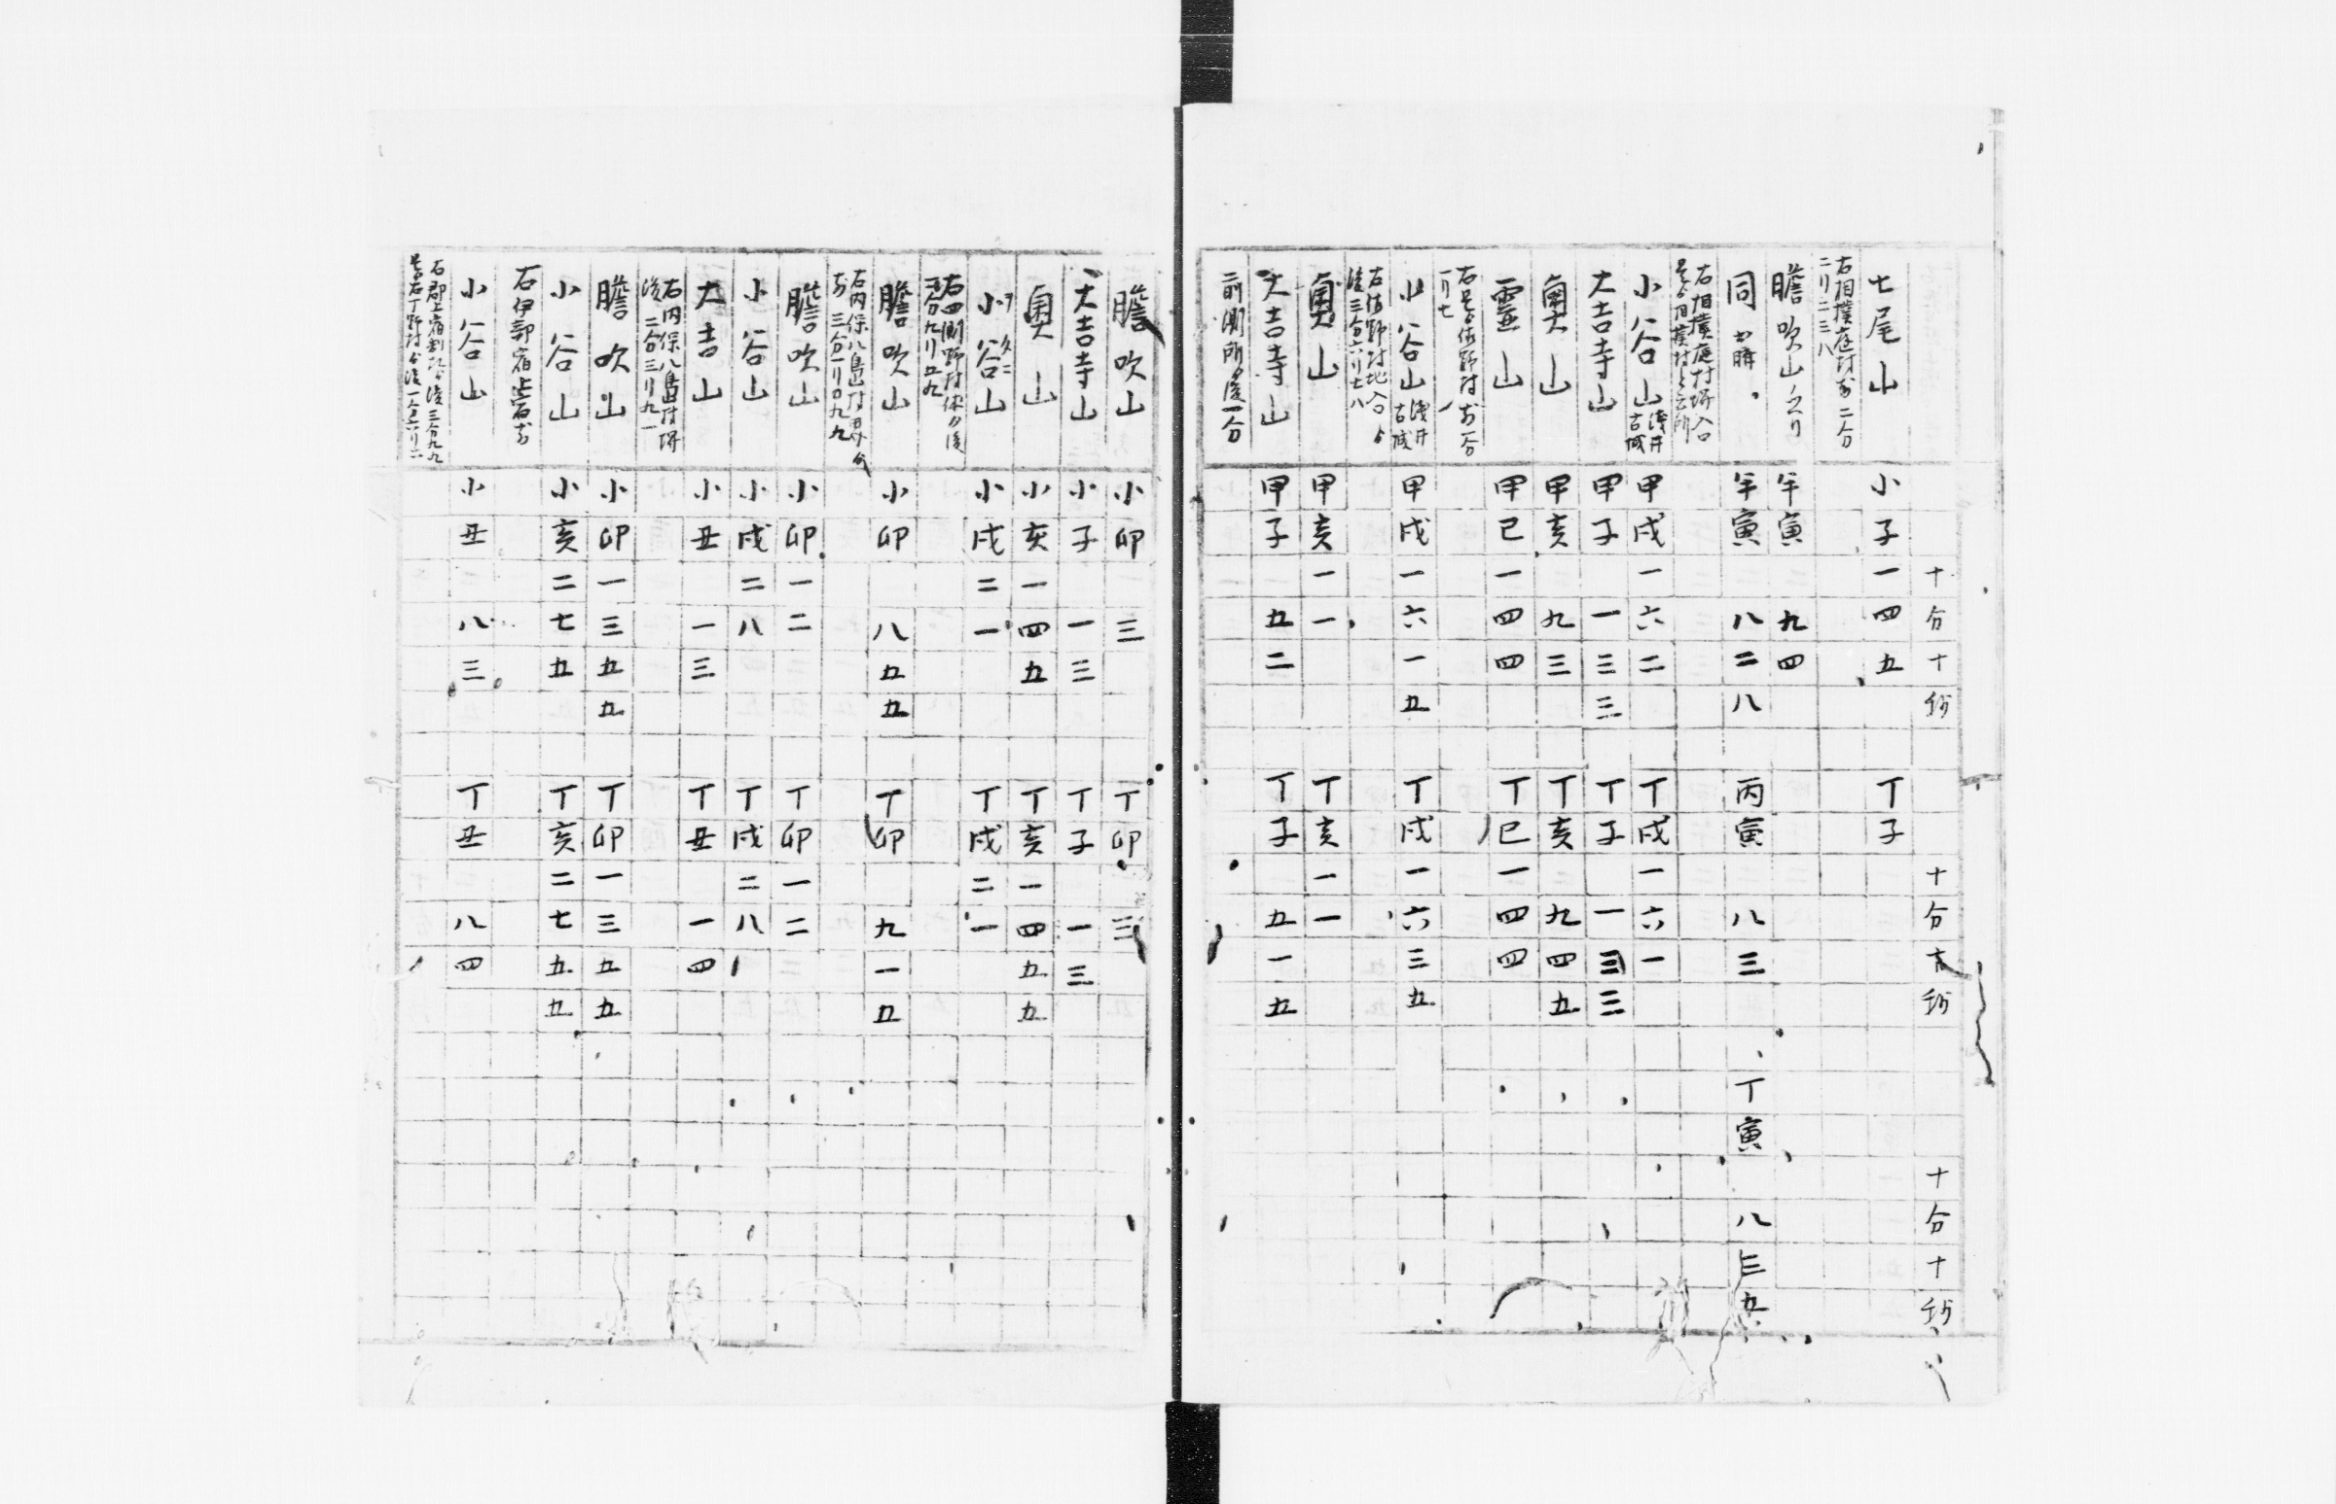 十分十秒 十分十秒 十分十秒
七尾山 小子一四五 丁子
右相撲庭村 二分
二リ二三八
膽吹山 午寅九四
同 午寅八二八 丙寅八三 丁寅八三五
右相撲庭村塀入口
小谷山 浅井古城 甲戌一六二 丁戌一六一
大吉寺山 甲子一三三 丁子一三三
奥山 甲亥九三 丁亥九四五
靈山 甲巳一四四 丁巳一四四
一リ七
小谷山 浅井古城 甲戌一六一五 丁戌一六三五
後三分六リ七八
奥山 甲亥一一 丁亥一一
大吉寺山 甲子五二 丁子五一五
二前測所ゟ後一分
膽吹山 小卯三 丁卯三
大吉寺山 小子一三 丁子一三
奥山 小亥一四五 丁亥一四五五
小谷山 小戌二一 丁戌二一
膽吹山 小卯八五五 丁卯九一五
右内保八島山村
三分一リ〇九九
膽吹山 小卯一二 丁卯一二
小谷山 小戌二八 丁戌二八
大吉山 小丑一三 丁丑一四
右内保八島村塀
後二分三リ九一
膽吹山 小卯一三五五 丁卯一三五五
小谷山 小亥二七五 丁亥二七五五
右伊部宿
小谷山 小丑八三 丁丑八四